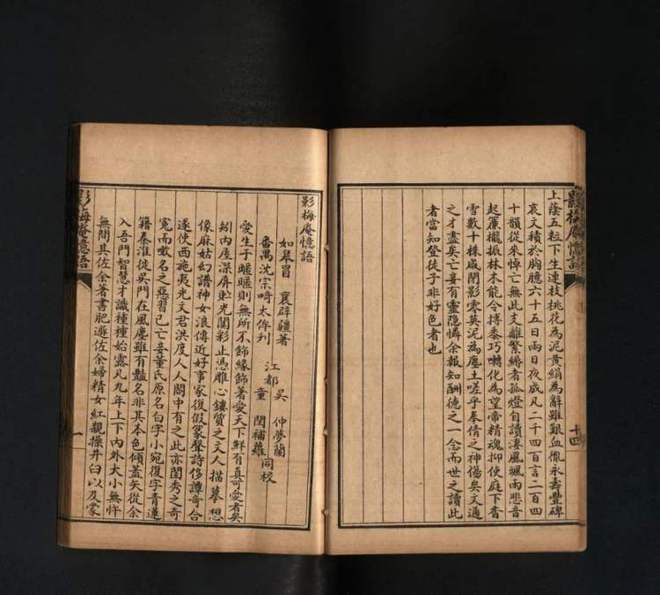 影梅庵憶語
十四
上蔭五粒下生連枝桃花為泥黃絹為辭雖艱血儆永壽豐碑
哀文積於胸臆六十五日兩日夜成凡二千四百言二百四
十韻從來悼亡無此支離繁縟者孤燈自讀凄風颯雨悲音
起簾櫳振林木能令搏黍巧囀化為望帝精魂抑使庭下香
雪數十株咸閉影寒英沉為塵土嗟乎奉倩之神傷矣文通
之才盡矣亡妾有靈隱憐余報知酬德之一念而世之讀此
者當知登徒子非好色者也
影梅庵憶語
如皋冒 襄辟疆著
番禺沈宗畸太侔列
江都 吳 仲夢蘭
童 閏補蘿 同校
愛生于暱暱則無所不飾緣飾著愛天下鮮有真可愛者矣
矧內屋深屏貯光闃彩止憑雕心鏤質之文人描摹想
像麻姑幻譜神女浪傳近好事家復假篆聲詩侈譚奇合
遂使西施夷光文君洪度人人閣中有之此亦閨秀之奇
冤而噉名之惡習已亡妾董氏原名白字小宛復字青蓮
籍秦淮徙吳門在風塵雖有豔名非其本色傾蓋矢從余
入吾門智慧才識種種始露凡九年上下內外大小無忤
無間其佐余著書肥遯佐余婦精女紅親操井臼以及蒙
影梅庵憶語
一